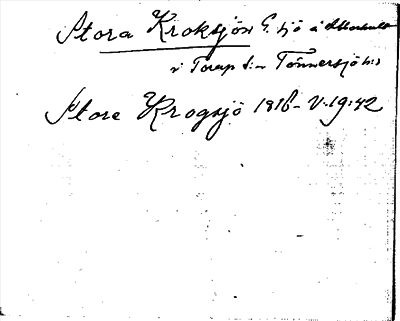 Stora Kroksjön G. sjö å
i Torup s:n Tönnersjö h:d
Store Krogsjö 1818- V.19:42